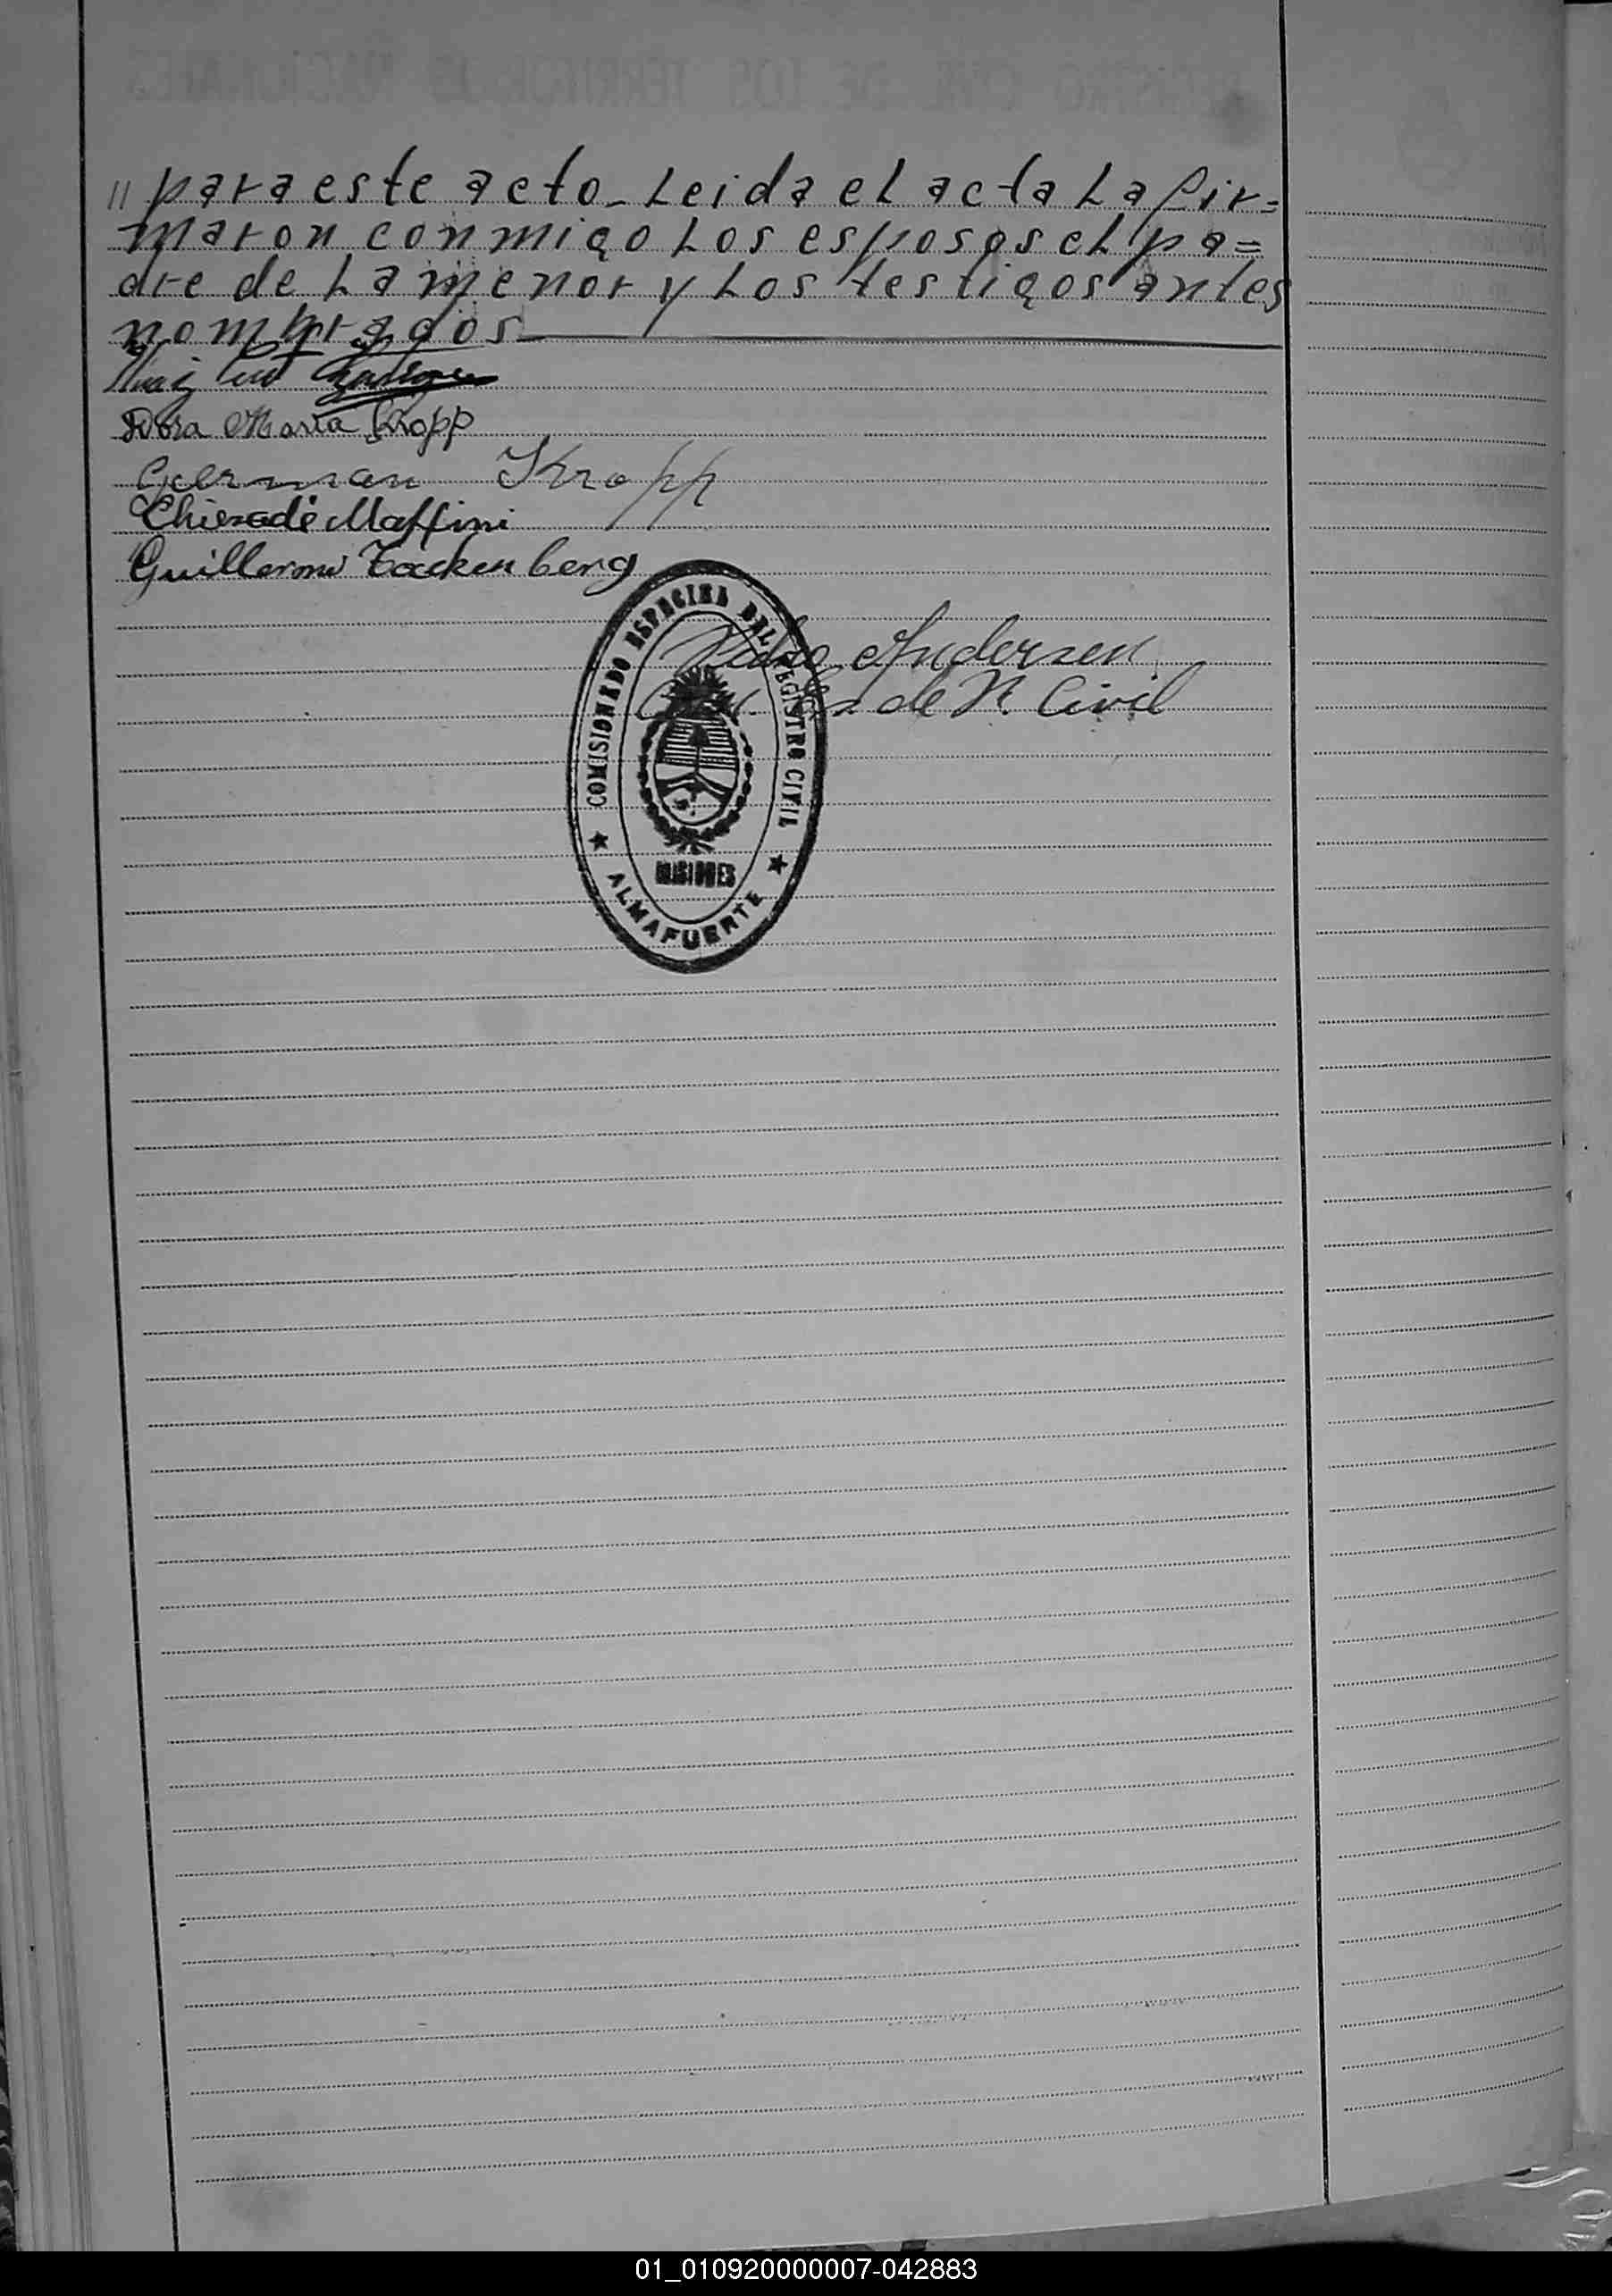 REGISTRO CIVIL DE LOS TERRITORIOS NACIONALES
// para este acto_ Leida el acta La fir=
maron conmigo Los esposos el pa=
dre de La menor y Los testigos antes
nombrados
Dora Maria Kropp
German Kropp
Maffini
Guillermo Tackenberg
Pedro Andersen
de R. Civil
COMISIONADO ESPECIAL DEL REGISTRO CIVIL
MISIONES
ALMAFUERTE
01_010920000007-042883